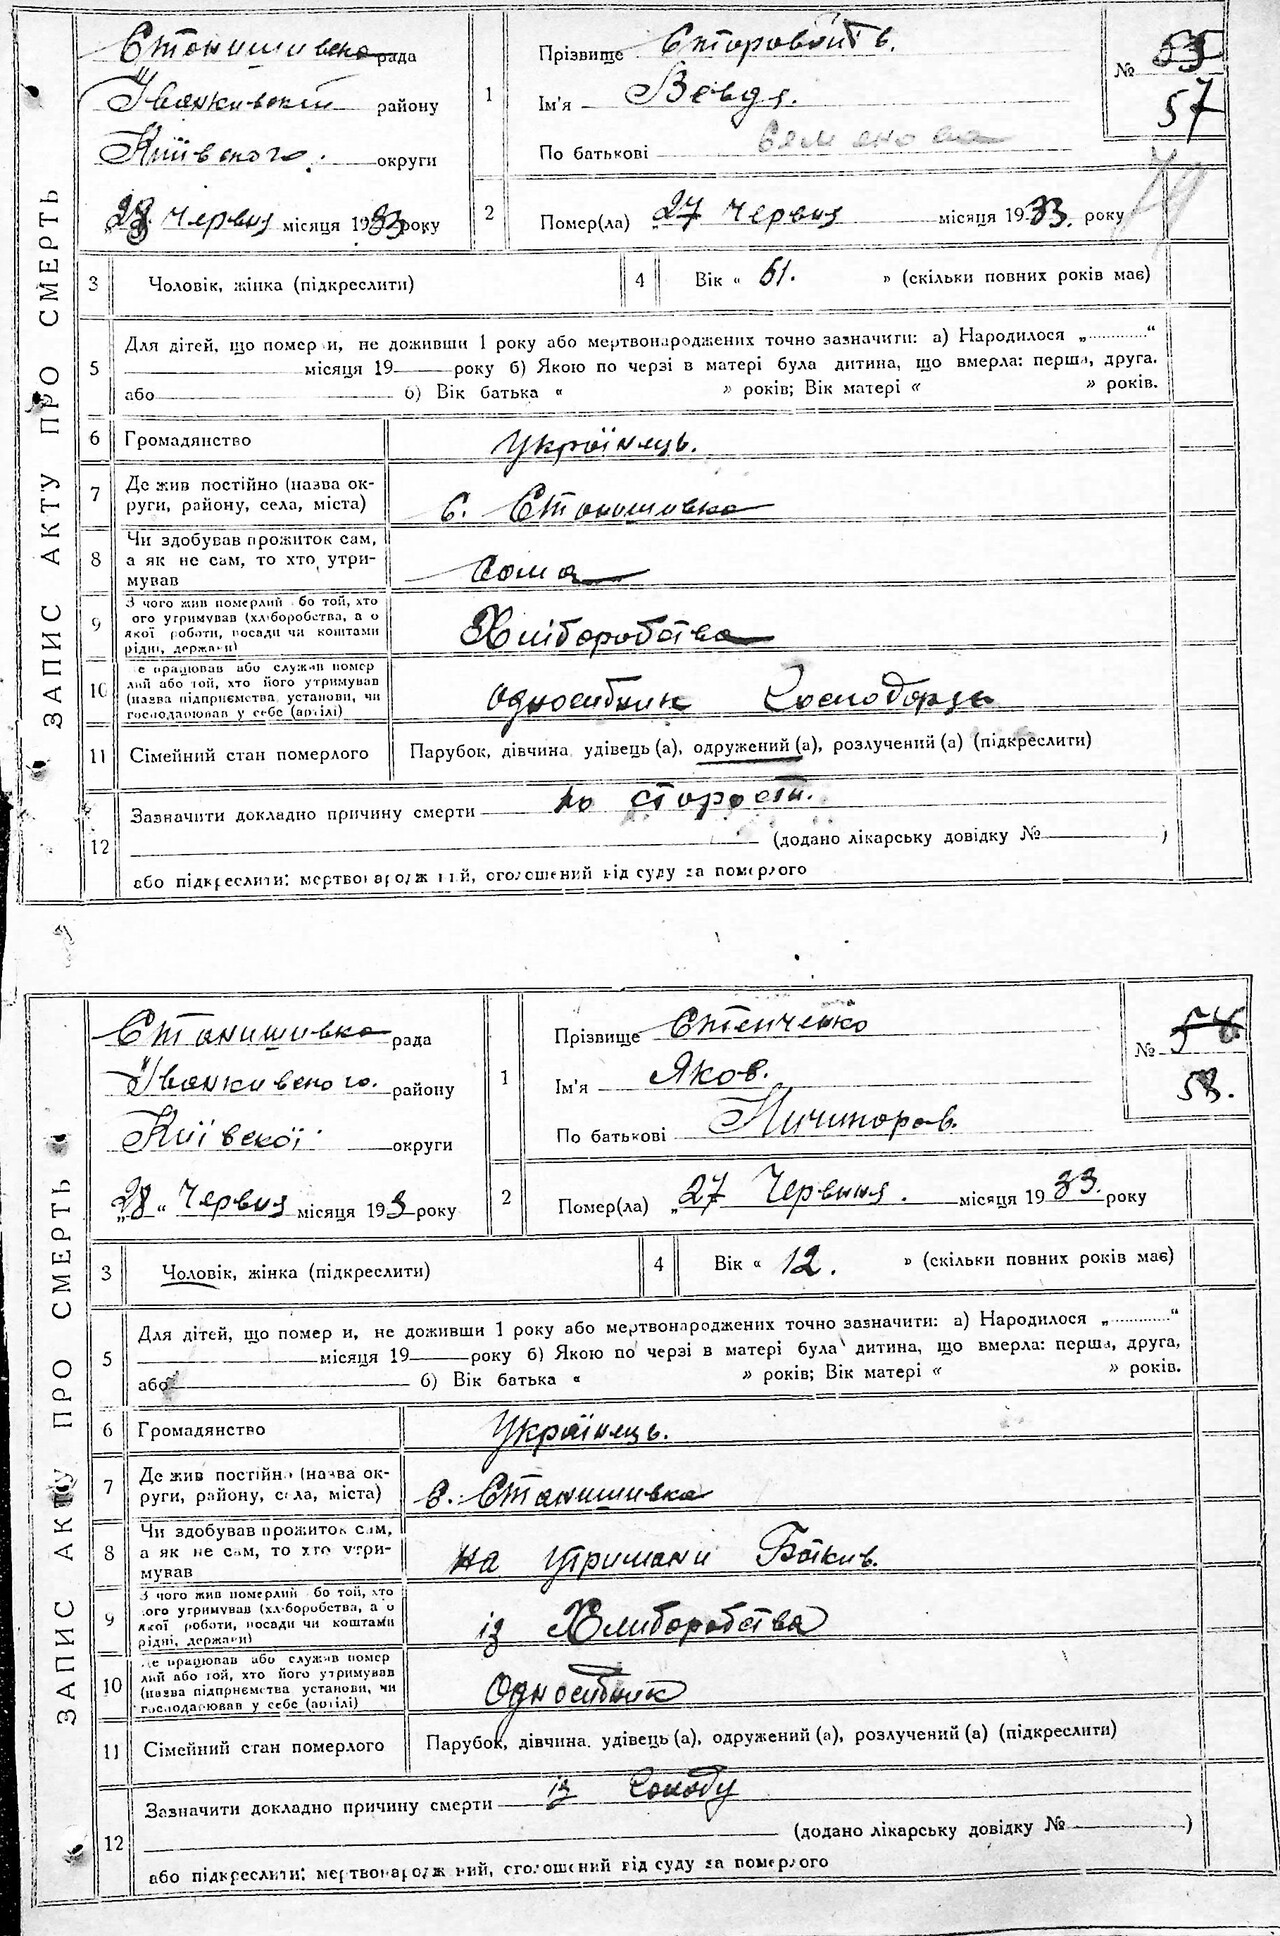 ЗАПИС АКТУ ПРО СМЕРТЬ
Станишивська рада
Іванкивский району
Київского округи
28 Червня місяця 1933 року
1
Прізвище
Ім'я Вевдя.
По батькові Семенова
№ 55
57
2
Помер(ла) 27 Червня місяця 1933. року
3 Чоловік, жінка (підкреслити)
4 Вік « 51. » (скільки повних років має)
5 Для дітей, що померли, не доживши 1 року або мертвонароджених точно зазначити: а) Народилося „ “
місяця 19 року б) Якою по черзі в матері була дитина, що вмерла: перша, друга.
або б) Вік батька « » років; Вік матері « » років.
6 Громадянство Українець.
7 Де жив постійно (назва округи, району, села, міста) с. Станишивка
8 Чи здобував прожиток сам,
а як не сам, то хто утри-
мував
сама
9 З чого жив померлий бо той, хто
ого утримував (хліборобства, а о
якої роботи, посади чи коштами
рідні, держави)
Хліборобства
10 е працював або служив помер
лий або той, хто його утримував
(назва підприємства, установи, чи
господарював у себе (артілі)
односибник Господарка
11 Сімейний стан померлого Парубок, дівчина, удівець (а), одружений (а), розлучений (а) (підкреслити)
12 Зазначити докладно причину смерти по старости.
(додано лікарську довідку № )
або підкреслити: мертвонароджений, оголошений від суду за померлого
ЗАПИС АКТУ ПРО СМЕРТЬ
Станишивка рада
Іванкивского. району
Київскої округи
„28“ Червня місяця 193 року
1
Прізвище Степченко
Ім'я Яков.
По батькові Ничипоров.
№ 56
58.
2
Помер(ла) „27 Червния. місяця 1933. року
3 Чоловік, жінка (підкреслити)
4 Вік « 12. » (скільки повних років має)
5 Для дітей, що померли, не доживши 1 року або мертвонароджених точно зазначити: а) Народилося „ “
місяця 19 року б) Якою по черзі в матері була дитина, що вмерла: перша, друга,
або б) Вік батька « » років; Вік матері « » років.
6 Громадянство Українець.
7 Де жив постійно (назва округи, району, села, міста) с. Станишивка
8 Чи здобував прожиток сам,
а як не сам, то хто утри-
мував
на утримани Батькив.
9 З чого жив померлий бо той, хто
ого утримував (хліборобства, а о
якої роботи, посади чи коштами
рідні, держави)
із Хлиборобства
10 е працював або служив помер
лий або той, хто його утримував
(назва підприємства установи, чи
господарював у себе (артілі)
Односибник
11 Сімейний стан померлого Парубок, дівчина, удівець (а), одружений (а), розлучений (а) (підкреслити)
12 Зазначити докладно причину смерти із Голоду
(додано лікарську довідку № )
або підкреслити: мертвонароджений, оголошений від суду за померлого